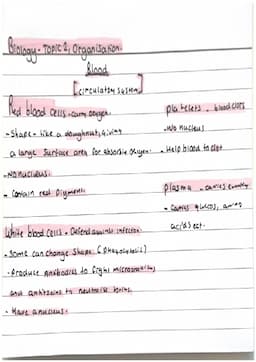 Biology - TOPIC 2, Organisation.
Blood
[circulatory system]
Red blood cells - carry oxygen.
- Shape - like a doughnut, giving
a large surface area for absorbing oxygen.
- No nucleus.
- Contain red pigment.
White blood cells - Defend against infection.
- Some can change shape (Phagocytosis)
- Produce antibodies to fight microorganisms,
and antitoxins to neutralise toxins.
- Have a nucleus.
platelets - blood clots
- No nucleus
- Help blood to clot
Plasma - carries
- Carries glucose, amino
acids ect.